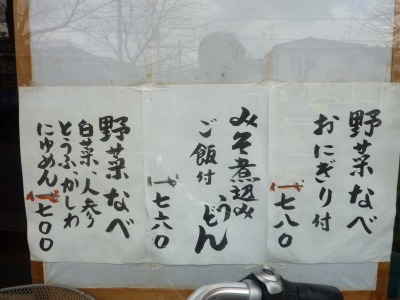 野菜なべ
おにぎり付
七八〇
みそ煮込みうどん
ご飯付
七六〇
野菜なべ
白菜、人参
とうふ、かしわ
にゅめん
七〇〇